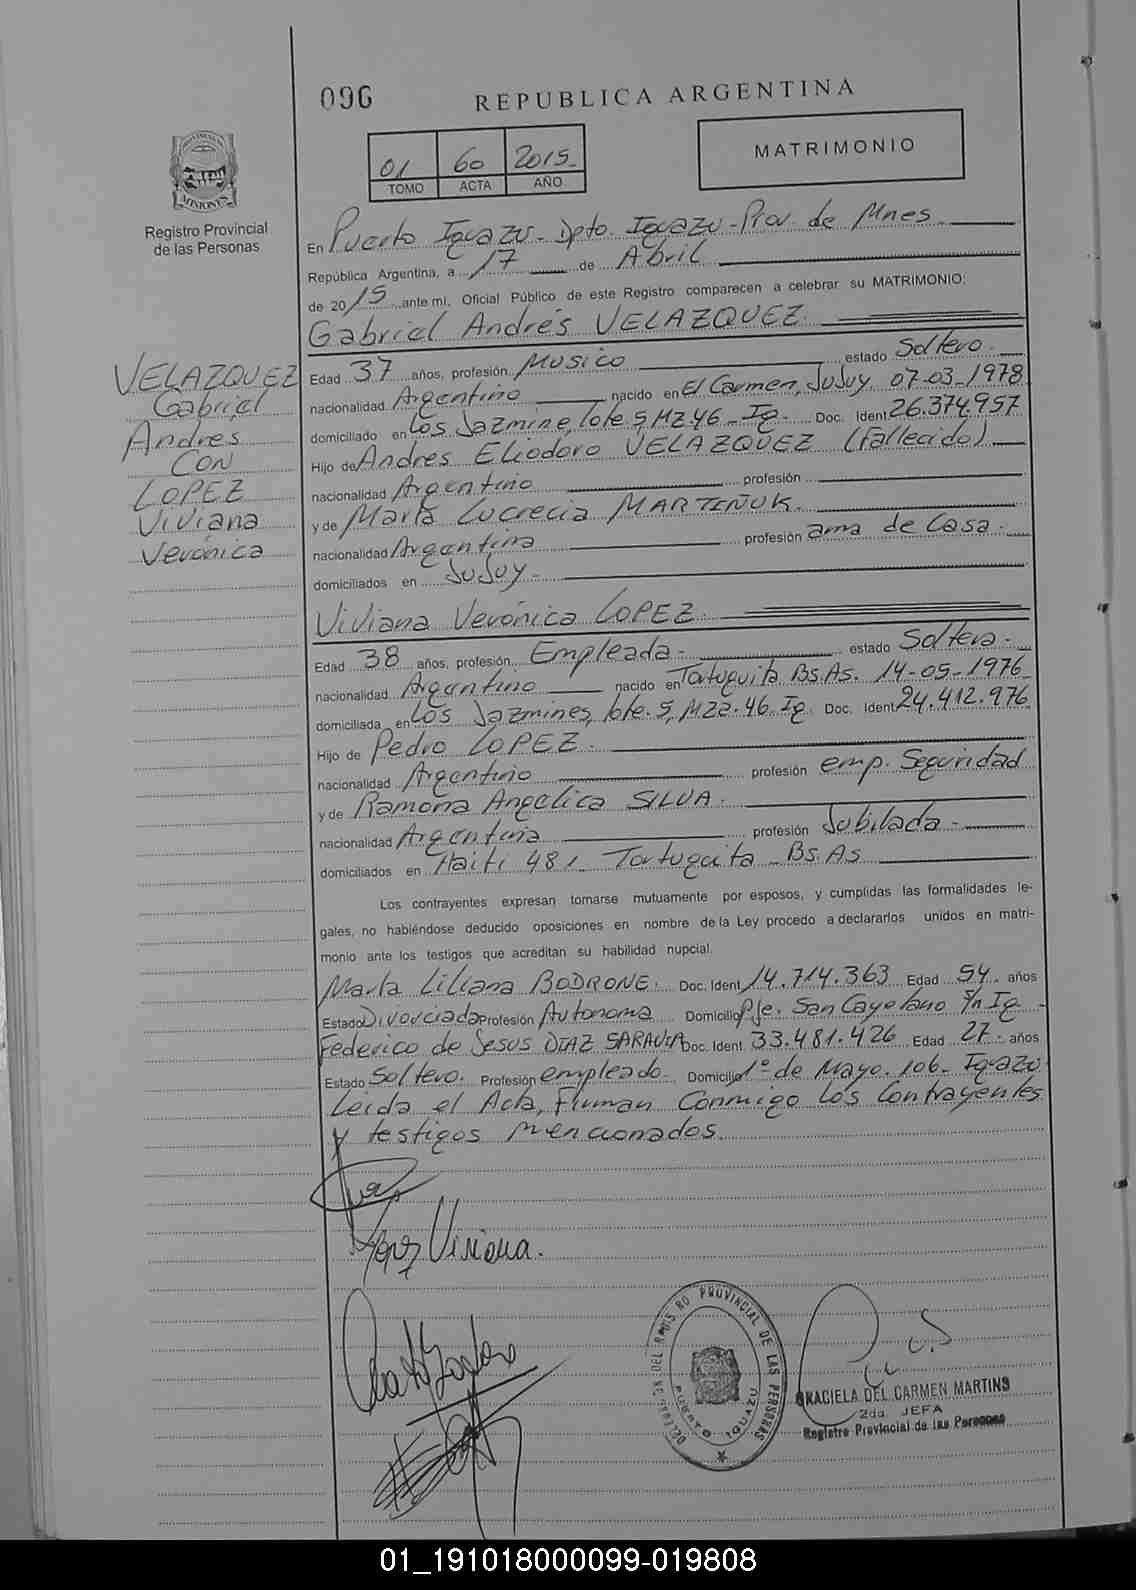 096
REPUBLICA ARGENTINA
01 60 2015
TOMO ACTA AÑO
MATRIMONIO
Registro Provincial
de las Personas
VELAZQUEZ
Gabriel
Andres
CON
LOPEZ
Viviana
Verónica
En Puerto Iguazu - Dpto. Iguazu - Prov. de Mnes.
República Argentina, a 17 de Abril
de 2015 ante mi, Oficial Público de este Registro comparecen a celebrar su MATRIMONIO:
Gabriel Andrés VELAZQUEZ
Edad 37 años, profesión Musico estado Soltero.
nacionalidad Argentino nacido en El Carmen, JuJuy 07-03-1978
domiciliado en Los Jazmine, lote 5 Mz 46 - Ig. Doc. Ident 26.374.957
Hijo de Andres Eliodoro VELAZQUEZ (Fallecido)
nacionalidad Argentino profesión
y de María Lucrecia MARTIÑUK
nacionalidad Argentina profesión ama de Casa.
domiciliados en JuJuy -
Viviana Verónica LOPEZ.
Edad 38 años, profesión, Empleada - estado Soltera -
nacionalidad Argentino nacido en Tortuguita Bs.As. 14-05-1976
domiciliada en Los Jazmines, lote. 5, Mza. 46 Ig. Doc. Ident 24.412.976
Hijo de Pedro LOPEZ.
nacionalidad Argentino profesión emp. Seguridad
y de Ramona Angelica SILVA.
nacionalidad Argentina profesión Jubilada -
domiciliados en Haiti 481 - Tortuguita - Bs.As
Los contrayentes expresan tomarse mutuamente por esposos, y cumplidas las formalidades le-
gales, no habiéndose deducido oposiciones en nombre de la Ley procedo a declararlos unidos en matri-
monio ante los testigos que acreditan su habilidad nupcial.
Marta Liliana BODRONE. Doc. Ident 14.714.363 Edad 54. años
Estado Divorciada Profesión Autonoma Domicilio Pje. San Cayetano s/n Ig -
Federico de Jesus DIAZ SARAVIA Doc. Ident. 33.481.426 Edad 27. años
Estado Soltero. Profesión empleado. Domicilio 1º de Mayo. 106 - Iguazu.
Leida el Acta, Firman Conmigo los Contrayentes
y testigos mencionados.
Lopez Viviana.
DELEGACION DEL REGISTRO PROVINCIAL DE LAS PERSONAS
PUERTO IGUAZU
GRACIELA DEL CARMEN MARTINS
2da. JEFA
Registro Provincial de las Personas
01_191018000099-019808